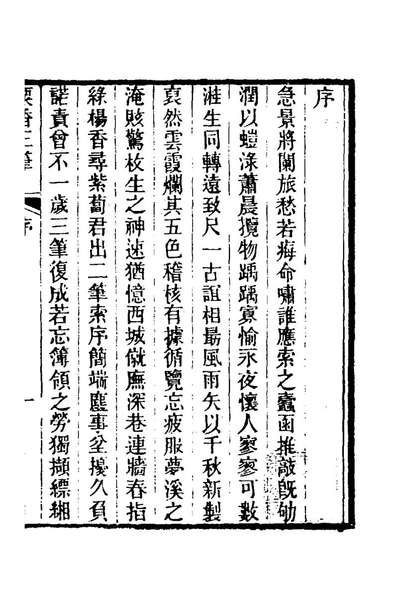 序
急景將闌旅愁若痗命嘯誰應索之蠹函推敲旣劬
潤以螘淥蕭晨攬物踽踽寡愉永夜懷人寥寥可數
淮生同轉遠致尺一古誼相勗風雨矢以千秋新製
裒然雲霞爛其五色稽核有據循覽忘疲服夢溪之
淹賅驚枚生之神速猶憶西城僦廡深巷連牆春指
綠楊香尋紫蔔君出二筆索序簡端塵事坌擾久負
諾責曾不一歲三筆復成若忘簿領之勞獨擷縹緗
粟香三筆
序
一